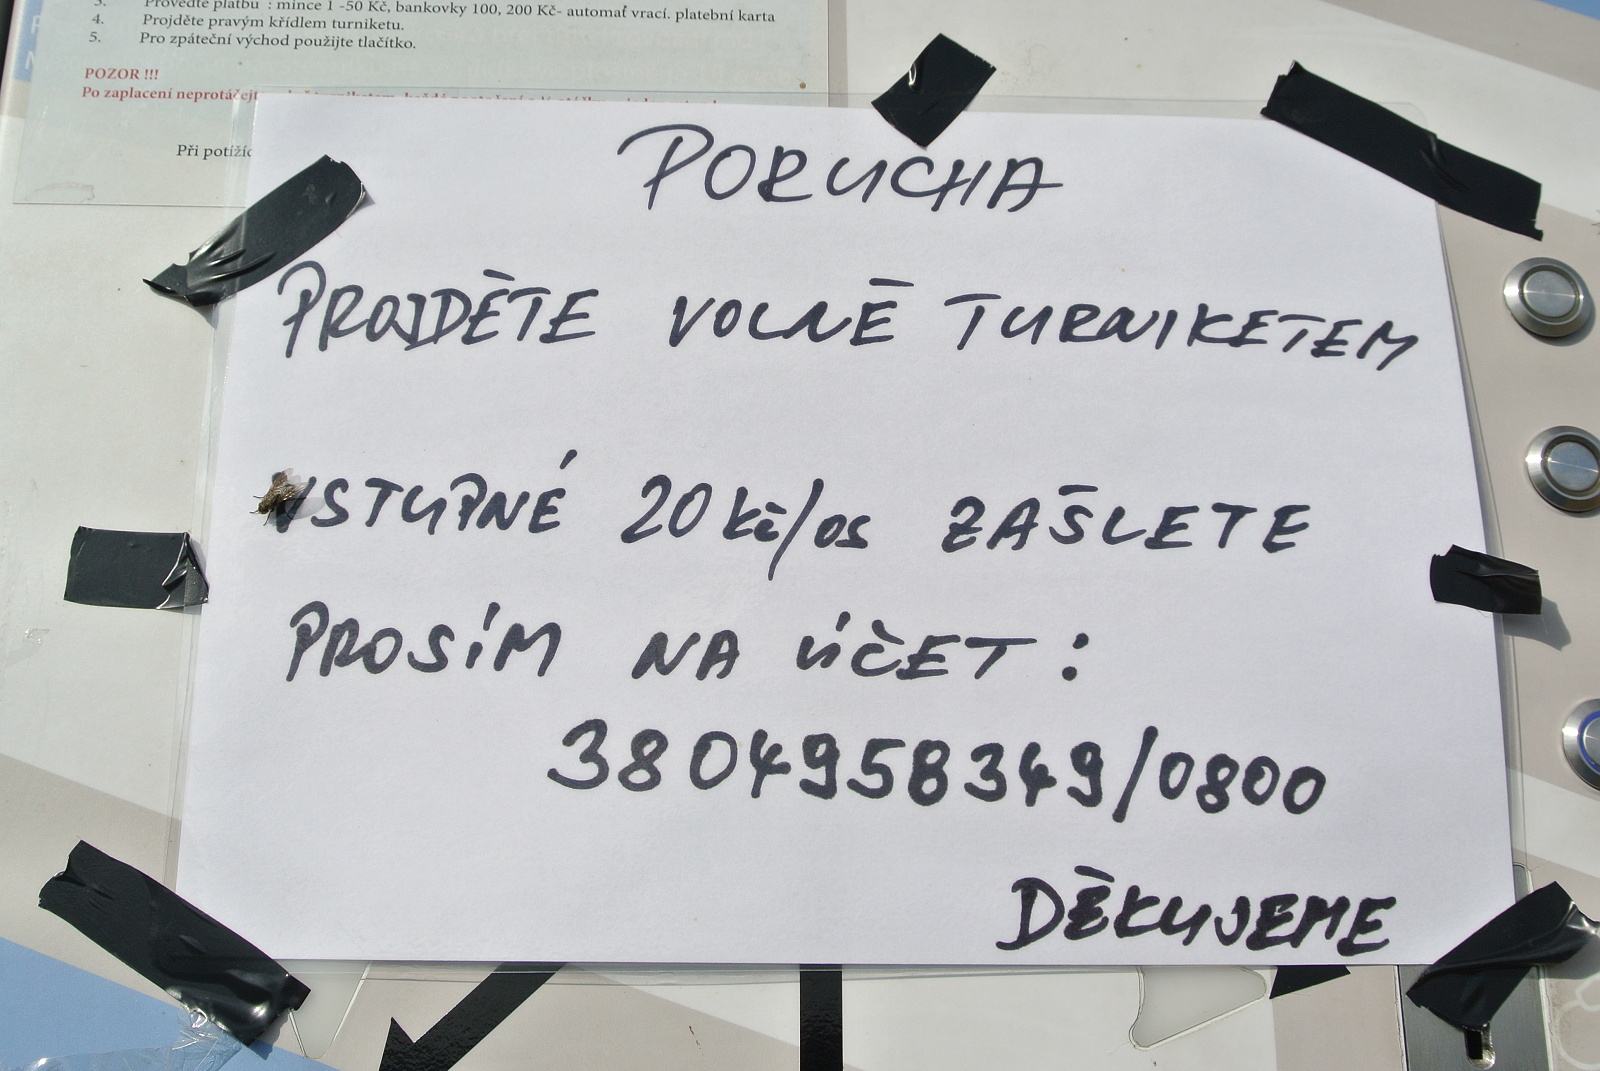 3. Proveďte platbu : mince 1 -50 Kč, bankovky 100, 200 Kč- automat vrací. platební karta
4. Projděte pravým křídlem turniketu.
5. Pro zpáteční východ použijte tlačítko.
POZOR !!!
Po zaplacení neprotáčejt
Při potížíc
PORUCHA
PROJDĚTE VOLNĚ TURNIKETEM
VSTUPNÉ 20 kč/os ZAŠLETE
PROSÍM NA ÚČET :
3804958349/0800
DĚKUJEME